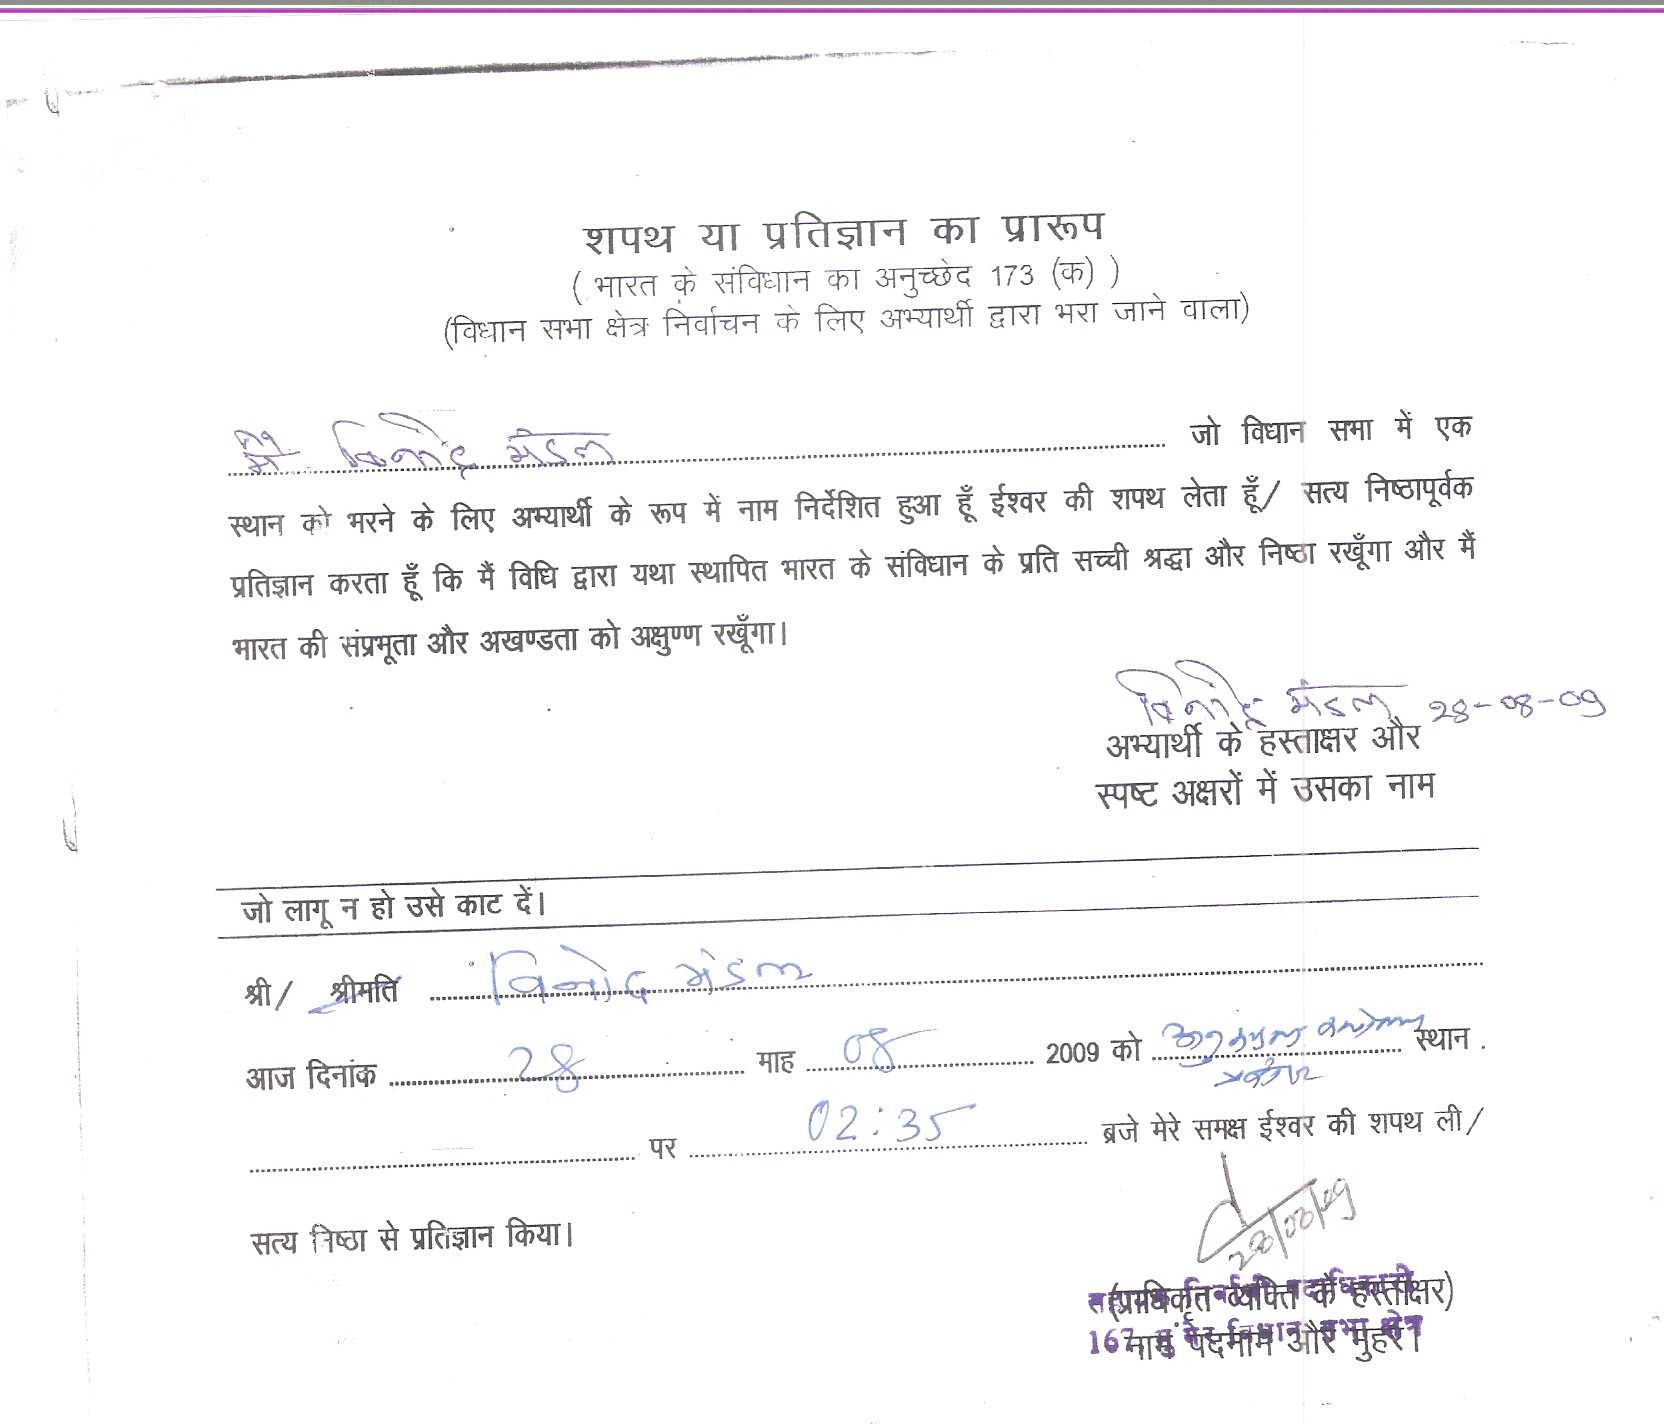 शपथ या प्रतिज्ञान का प्रारूप
( भारत के संविधान का अनुच्छेद 173 (क) )
(विधान सभा क्षेत्र निर्वाचन के लिए अभ्यार्थी द्वारा भरा जाने वाला)
मैं विनोद मंडल जो विधान सभा में एक
स्थान को भरने के लिए अभ्यार्थी के रूप में नाम निर्देशित हुआ हूँ ईश्वर की शपथ लेता हूँ/ सत्य निष्ठापूर्वक
प्रतिज्ञान करता हूँ कि मैं विधि द्वारा यथा स्थापित भारत के संविधान के प्रति सच्ची श्रद्धा और निष्ठा रखूँगा और मैं
भारत की संप्रभूता और अखण्डता को अक्षुण्ण रखूँगा।
विनोद मंडल 28-08-09
अभ्यार्थी के हस्ताक्षर और
स्पष्ट अक्षरों में उसका नाम
जो लागू न हो उसे काट दें।
श्री/ श्रीमति विनोद मंडल
आज दिनांक 28 माह 08 2009 को स्थान .
पर 02:35 ब्रजे मेरे समक्ष ईश्वर की शपथ ली/
28/08/09
सत्य निष्ठा से प्रतिज्ञान किया।
(प्राधिकृत व्यक्ति के हस्ताक्षर)
167 विधान सभा क्षेत्र
नाम पदनाम और मुहर।